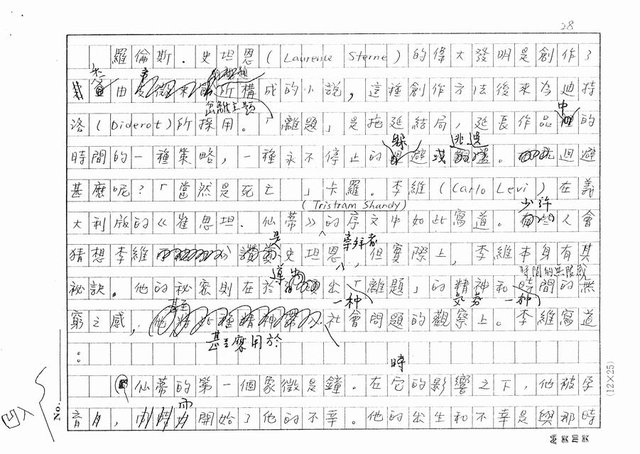 28
羅倫斯．史坦恩(Laurence Sterne)的偉大發明是創作了
由離題所構成的小說，這種創作方法後來為迪特
洛(Diderot)所採用。「離題」是拖延結局，延長作品中的
時間的一種策略，一種永不停止的躲避或逃遁。迴避
甚麼呢？「當然是死亡」卡羅．李維(Carlo Levi)在義
(Tristram Shandy)
大利版的《崔思坦．仙蒂》的序文中如此寫道。少許人會
猜想李維是史坦恩崇拜者，但實際上，李維本身有其
祕訣。他的秘密則在於導出「離題」的精神和時間的無
窮之感，甚至應用於社會問題的觀察上。李維寫道
：
仙蒂的第一個象徵是鐘。在它的影響之下，他被孕
育，而開始了他的不幸。他的出生和不幸是與那時
No.
(12×25)
凹入